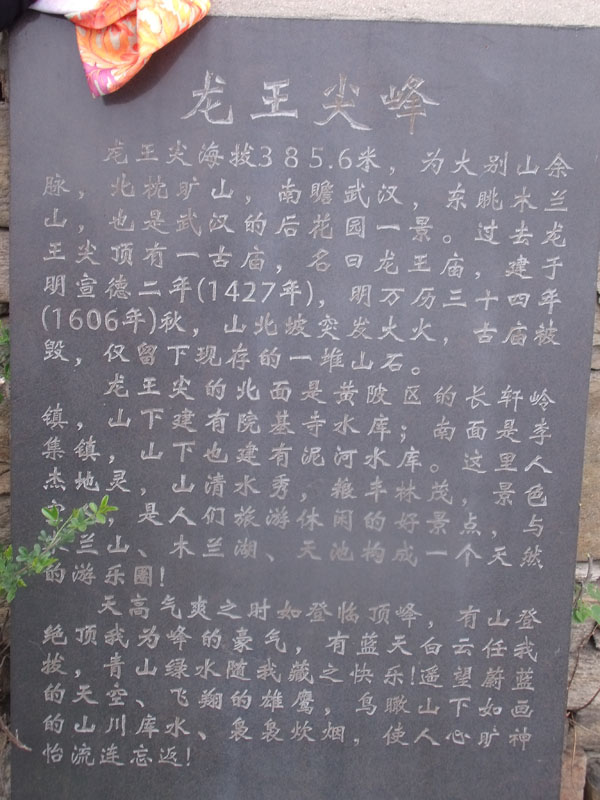 龙王尖峰
龙王尖海拔385.6米，为大别山余
脉，北枕旷山，南瞻武汉，东眺木兰
山，也是武汉的后花园一景。过去龙
王尖顶有一古庙，名曰龙王庙，建于
明宣德二年(1427年)，明万历三十四年
(1606年)秋，山北坡突发大火，古庙被
毁，仅留下现存的一堆山石。
龙王尖的北面是黄陂区的长轩岭
镇，山下建有院基寺水库；南面是李
集镇，山下也建有泥河水库。这里人
杰地灵，山清水秀，粮丰林茂，景色
，是人们旅游休闲的好景点，与
兰山、木兰湖、天池构成一个天然
的游乐圈！
天高气爽之时如登临顶峰，有山登
绝顶我为峰的豪气，有蓝天白云任我
拔，青山绿水随我藏之快乐！遥望蔚蓝
的天空、飞翔的雄鹰，鸟瞰山下如画
的山川库水、袅袅炊烟，使人心旷神
怡流连忘返！